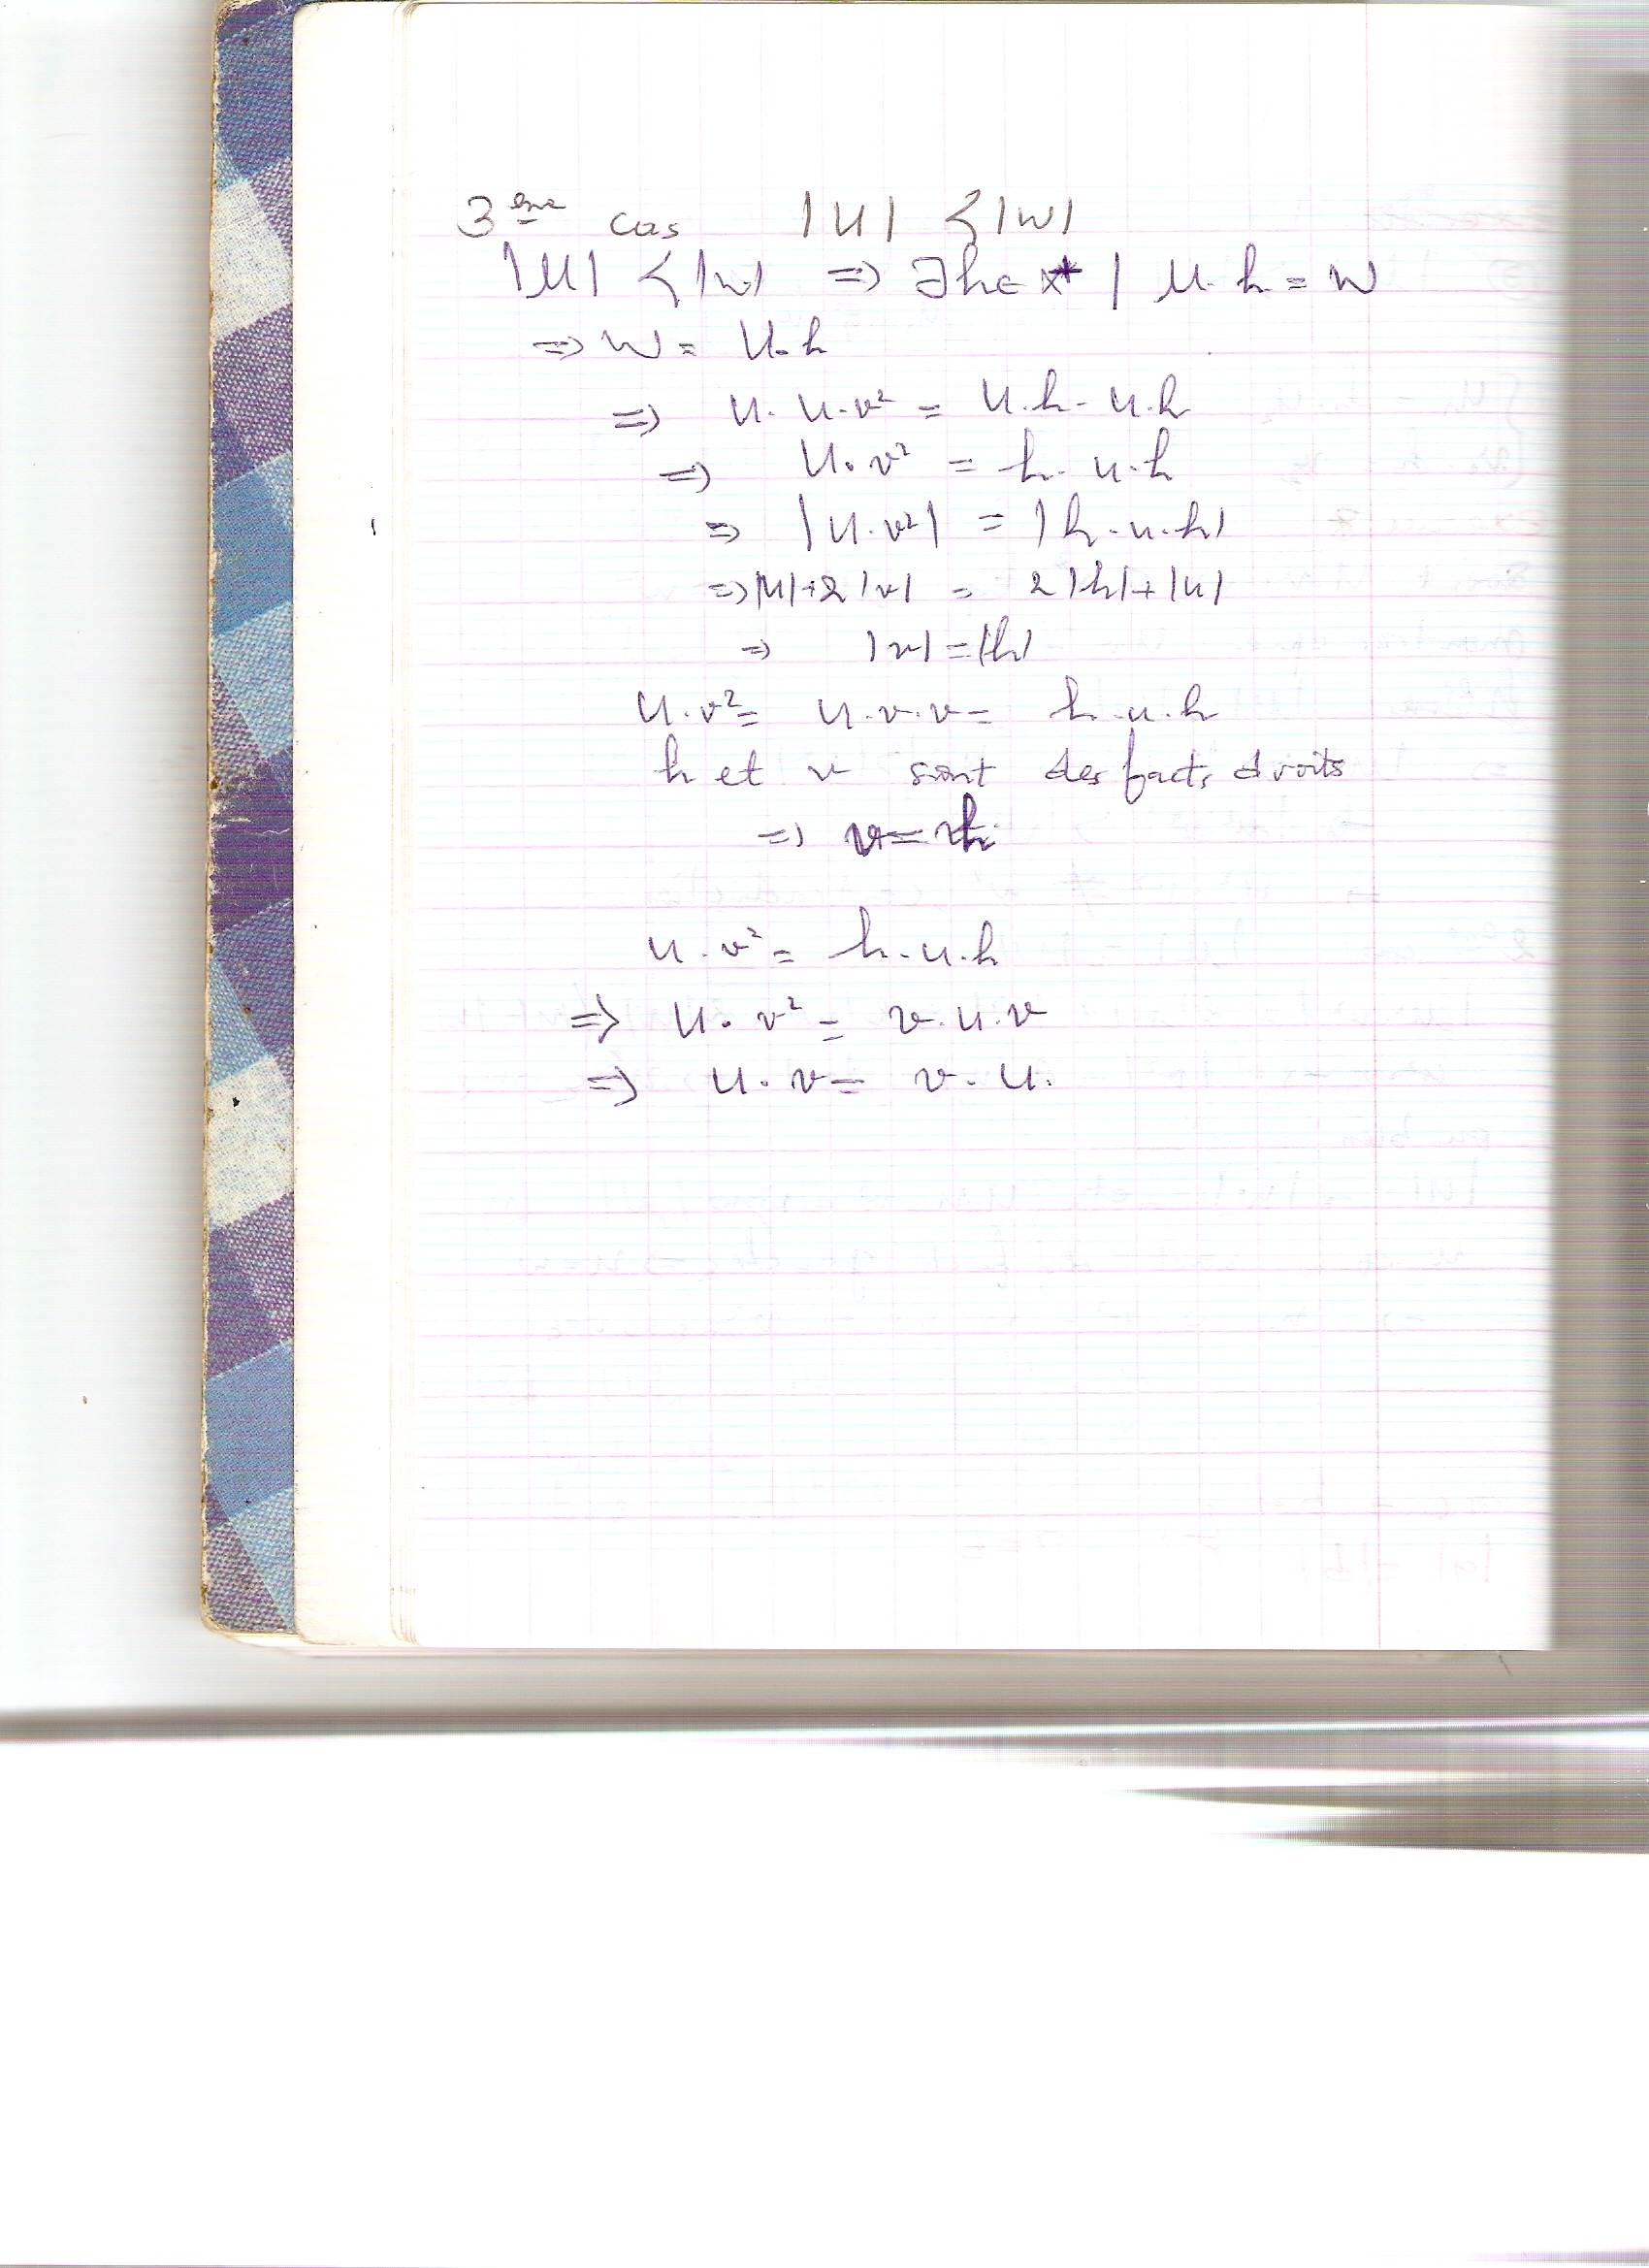 3ème cas |u| < |w|
|u| < |w| => ∃h∈ X* | u.h = w
=> w = u.h
=> u.u.v² = u.h.u.h
=> u.v² = h.u.h
=> |u.v²| = |h.u.h|
=> |u|+2|v| = 2|h|+|u|
=> |v| = |h|
u.v² = u.v.v = h.u.h
h et v sont des facts droits
=> v = h
u.v² = h.u.h
=> u.v² = v.u.v
=> u.v = v.u.